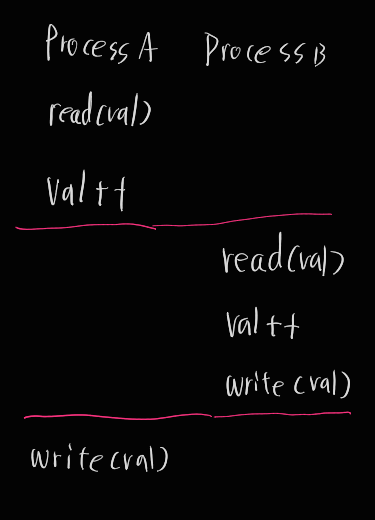 Process A Process B
read(val)
val++
read(val)
val++
write(val)
write(val)